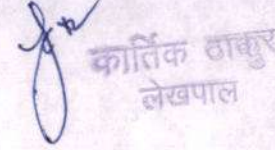 कार्तिक ठाकुर
लेखपाल